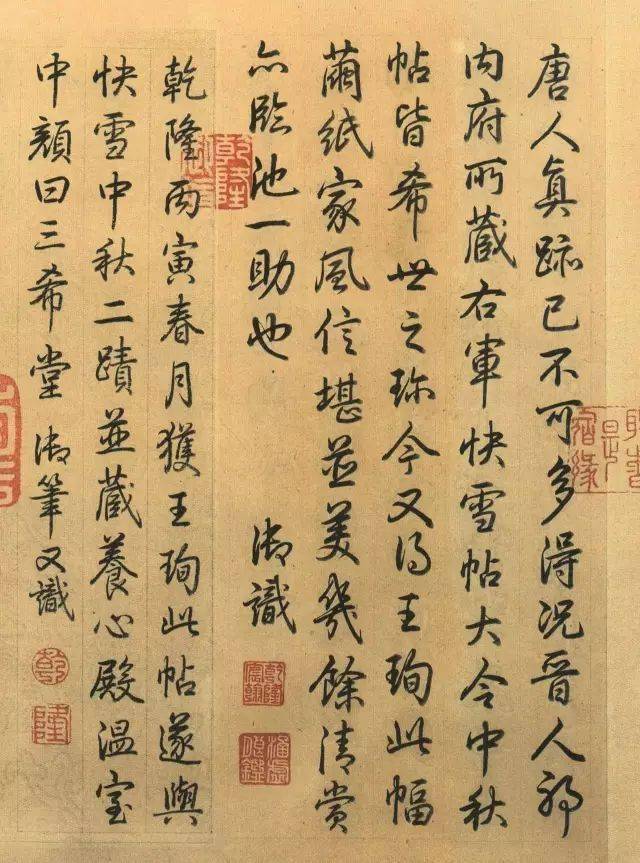 唐人真跡已不可多得况晉人耶
内府所藏右軍快雪帖大令中秋
帖皆希世之珍今又得王珣此幅
繭紙家風信堪並美幾餘清賞
亦臨池一助也 御識
乾隆宸翰
乾隆丙寅春月獲王珣此帖遂與
快雪中秋二蹟並藏養心殿温室
中顏曰三希堂 御筆又識
乾
隆